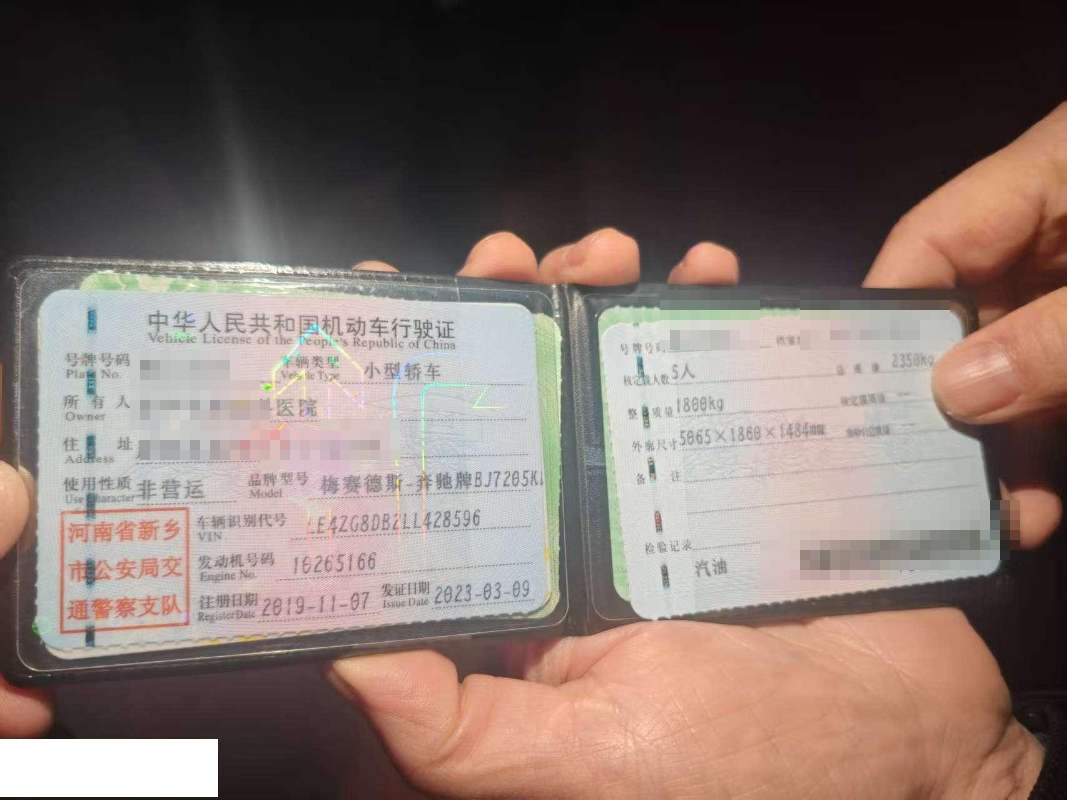 中华人民共和国机动车行驶证
Vehicle License of the People's Republic of China
号牌号码
Plate No.
车辆类型
Vehicle Type
小型轿车
所有人
Owner
医院
住址
Address
使用性质
Use Character
非营运
品牌型号
Model
梅赛德斯-奔驰牌BJ7205K
河南省新乡
市公安局交
通警察支队
车辆识别代号
VIN
LE4ZG8DB2LL428596
发动机号码
Engine No.
10265166
注册日期
Register Date
2019-11-07
发证日期
Issue Date
2023-03-09
号牌号码
核定载人数
5人
总质量
2350kg
整备质量
1800kg
核定载质量
外廓尺寸
5065×1860×1484mm
备注
检验记录
汽油